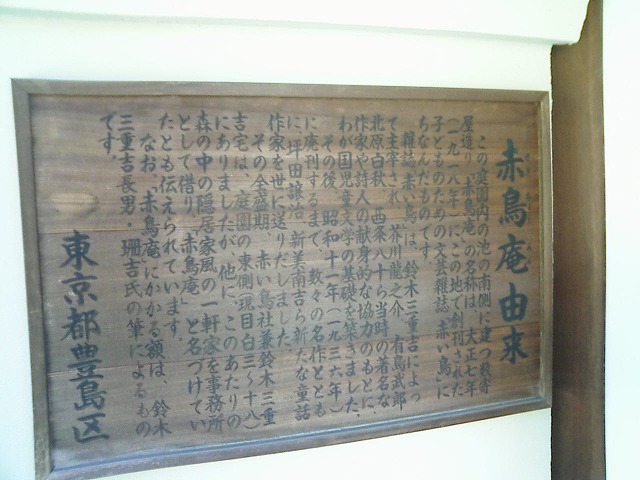 赤鳥庵由来
この庭園内の池の南側に建つ数寄
屋造り「赤鳥庵」の名称は、大正七年
(一九一八年)にこの地で創刊された
子どものための文芸雑誌「赤い鳥」に
ちなんだものです。
雑誌「赤い鳥」は、鈴木三重吉によっ
て主宰され、芥川龍之介、有島武郎、
北原白秋、西条八十ら当時の著名な
作家や詩人の献身的な協力のもとに、
わが国児童文学の基礎を築きました。
その後、昭和十一年(一九三六年)
に廃刊するまで、数々の名作ととも
に、坪田譲治、新美南吉ら新たな童話
作家を世に送りだしました。
その全盛期、赤い鳥社兼鈴木三重
吉宅は、庭園の東側(現目白三〜十八)
にありましたが、他に、このあたりの
森の中の隠居家風の一軒家を事務所
として借り、「赤鳥庵」と名づけてい
たとも伝えられています。
なお、「赤鳥庵」にかかる額は、鈴木
三重吉長男・珊吉氏の筆によるもの
です。
東京都豊島区